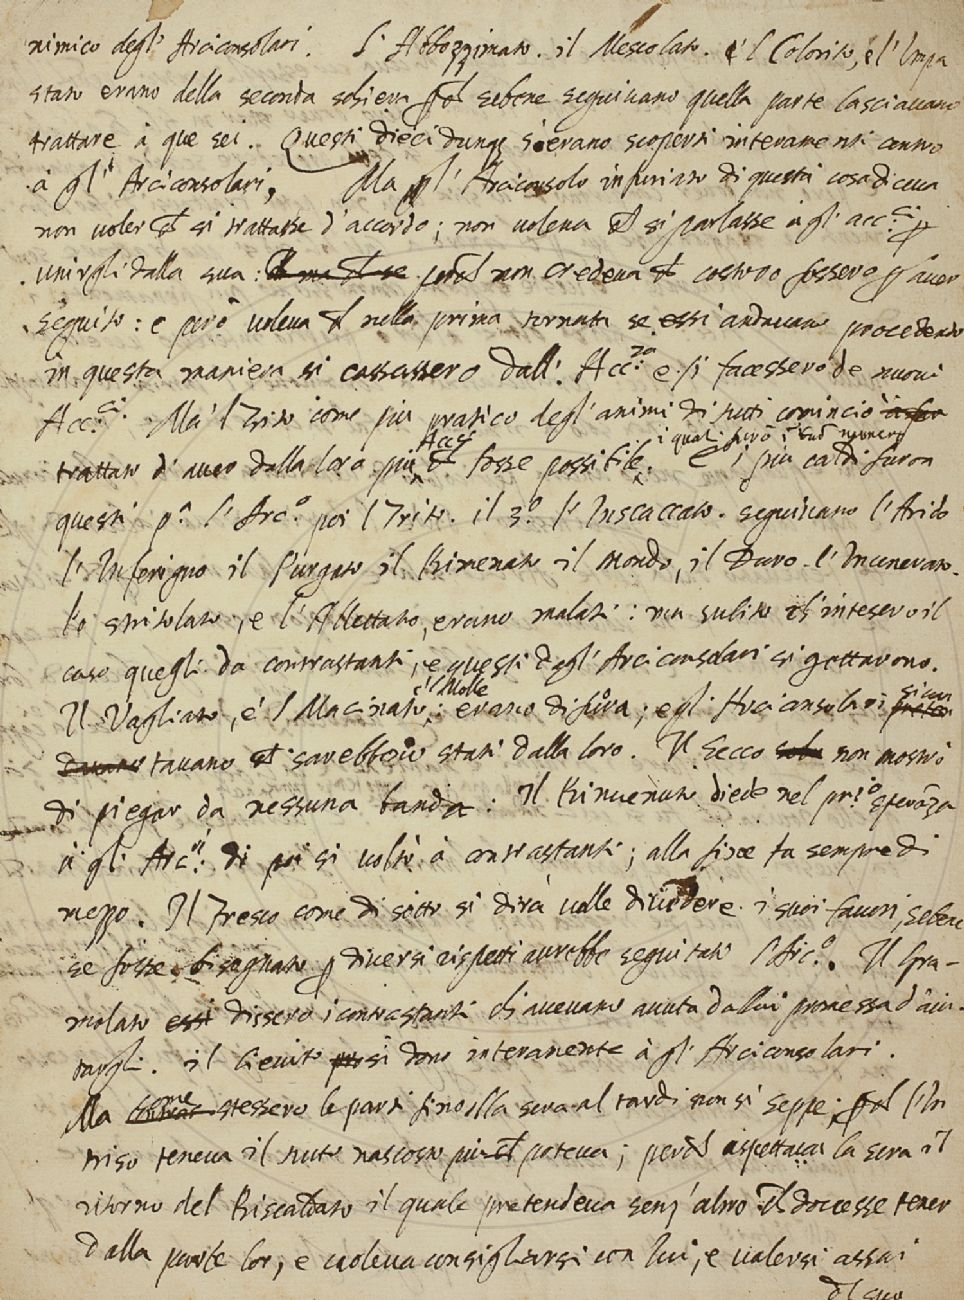 nimico degl' Arciconsolari. L'Abbozzimato. il Mescolato. e 'l Colorito, e l'Impa
stato erano della seconda schiera sebene seguivano quella parte lasciavano
trattare à que sei. Questi dieci dunq s'erano scoperti interamente contro
à gl' Arciconsolari, Ma l'Arciconsolo infuriato di questa cosa diceva
non voler ch si trattasse d'accordo; non voleva ch si parlasse à gli acc.ci p
unirgli dalla sua: non credeva ch costoro fossero p haver
seguito: e però voleva ch nella prima tornata se essi andavano procedendo
in questa maniera si cassassero dall'Acc.ia e si facessero de nuovi
Acc.ci Ma l Trito come più pratico degl'animi di tutti cominciò à
trattare d'aver dalla loro più Acc.ci ch fosse possibile. i quali furò i più caldi furon
questi p.a l'Arc.o poi l Trito. il 3.o l'Insaccato. seguivano l'Arido
l'Inferigno il Purgato il Rimenato il Mondo, il Duro. l'Incenerato.
lo stritolato, e l'Allettato, erano malati: ma subito ch'intesero il
caso quegli da contrastanti, e questi dagl'Arciconsolari si gettarono.
Il Vagliato, e 'l Macinato, e 'l Molle: erano difuora; e gl'Arciconsolari si con
tavano ch sarebbero stati dalla loro. Il Secco non mostrò
di piegar da nessuna banda: Il Rinvenuto diede nel pri.o sperāza
à gli Arc.ni: di poi si voltò à contrastanti; alla fine fu sempre di
mezzo. Il Fresco come di sotto si dirà volle dividere i suoi favori, sebene
se fosse bisognato p diversi rispetti avrebbe seguitati l'Arc.o. Il Gra-
molato dissero i contrastanti ch'avevano avuta da lui promessa d'aiu-
targli. il Lievito si dono interamente à gl'Arciconsolari.
Ma come stessero le parti fino alla sera al tardi non si seppe; l'In
triso teneva il tutto nascosto più ch poteva; perch aspettava la sera il
ritorno del Riscaldato il quale pretendeva senz'altro ch dovesse tener
dalla parte lor, e voleva consigliarsi con lui, e valersi assai
del suo